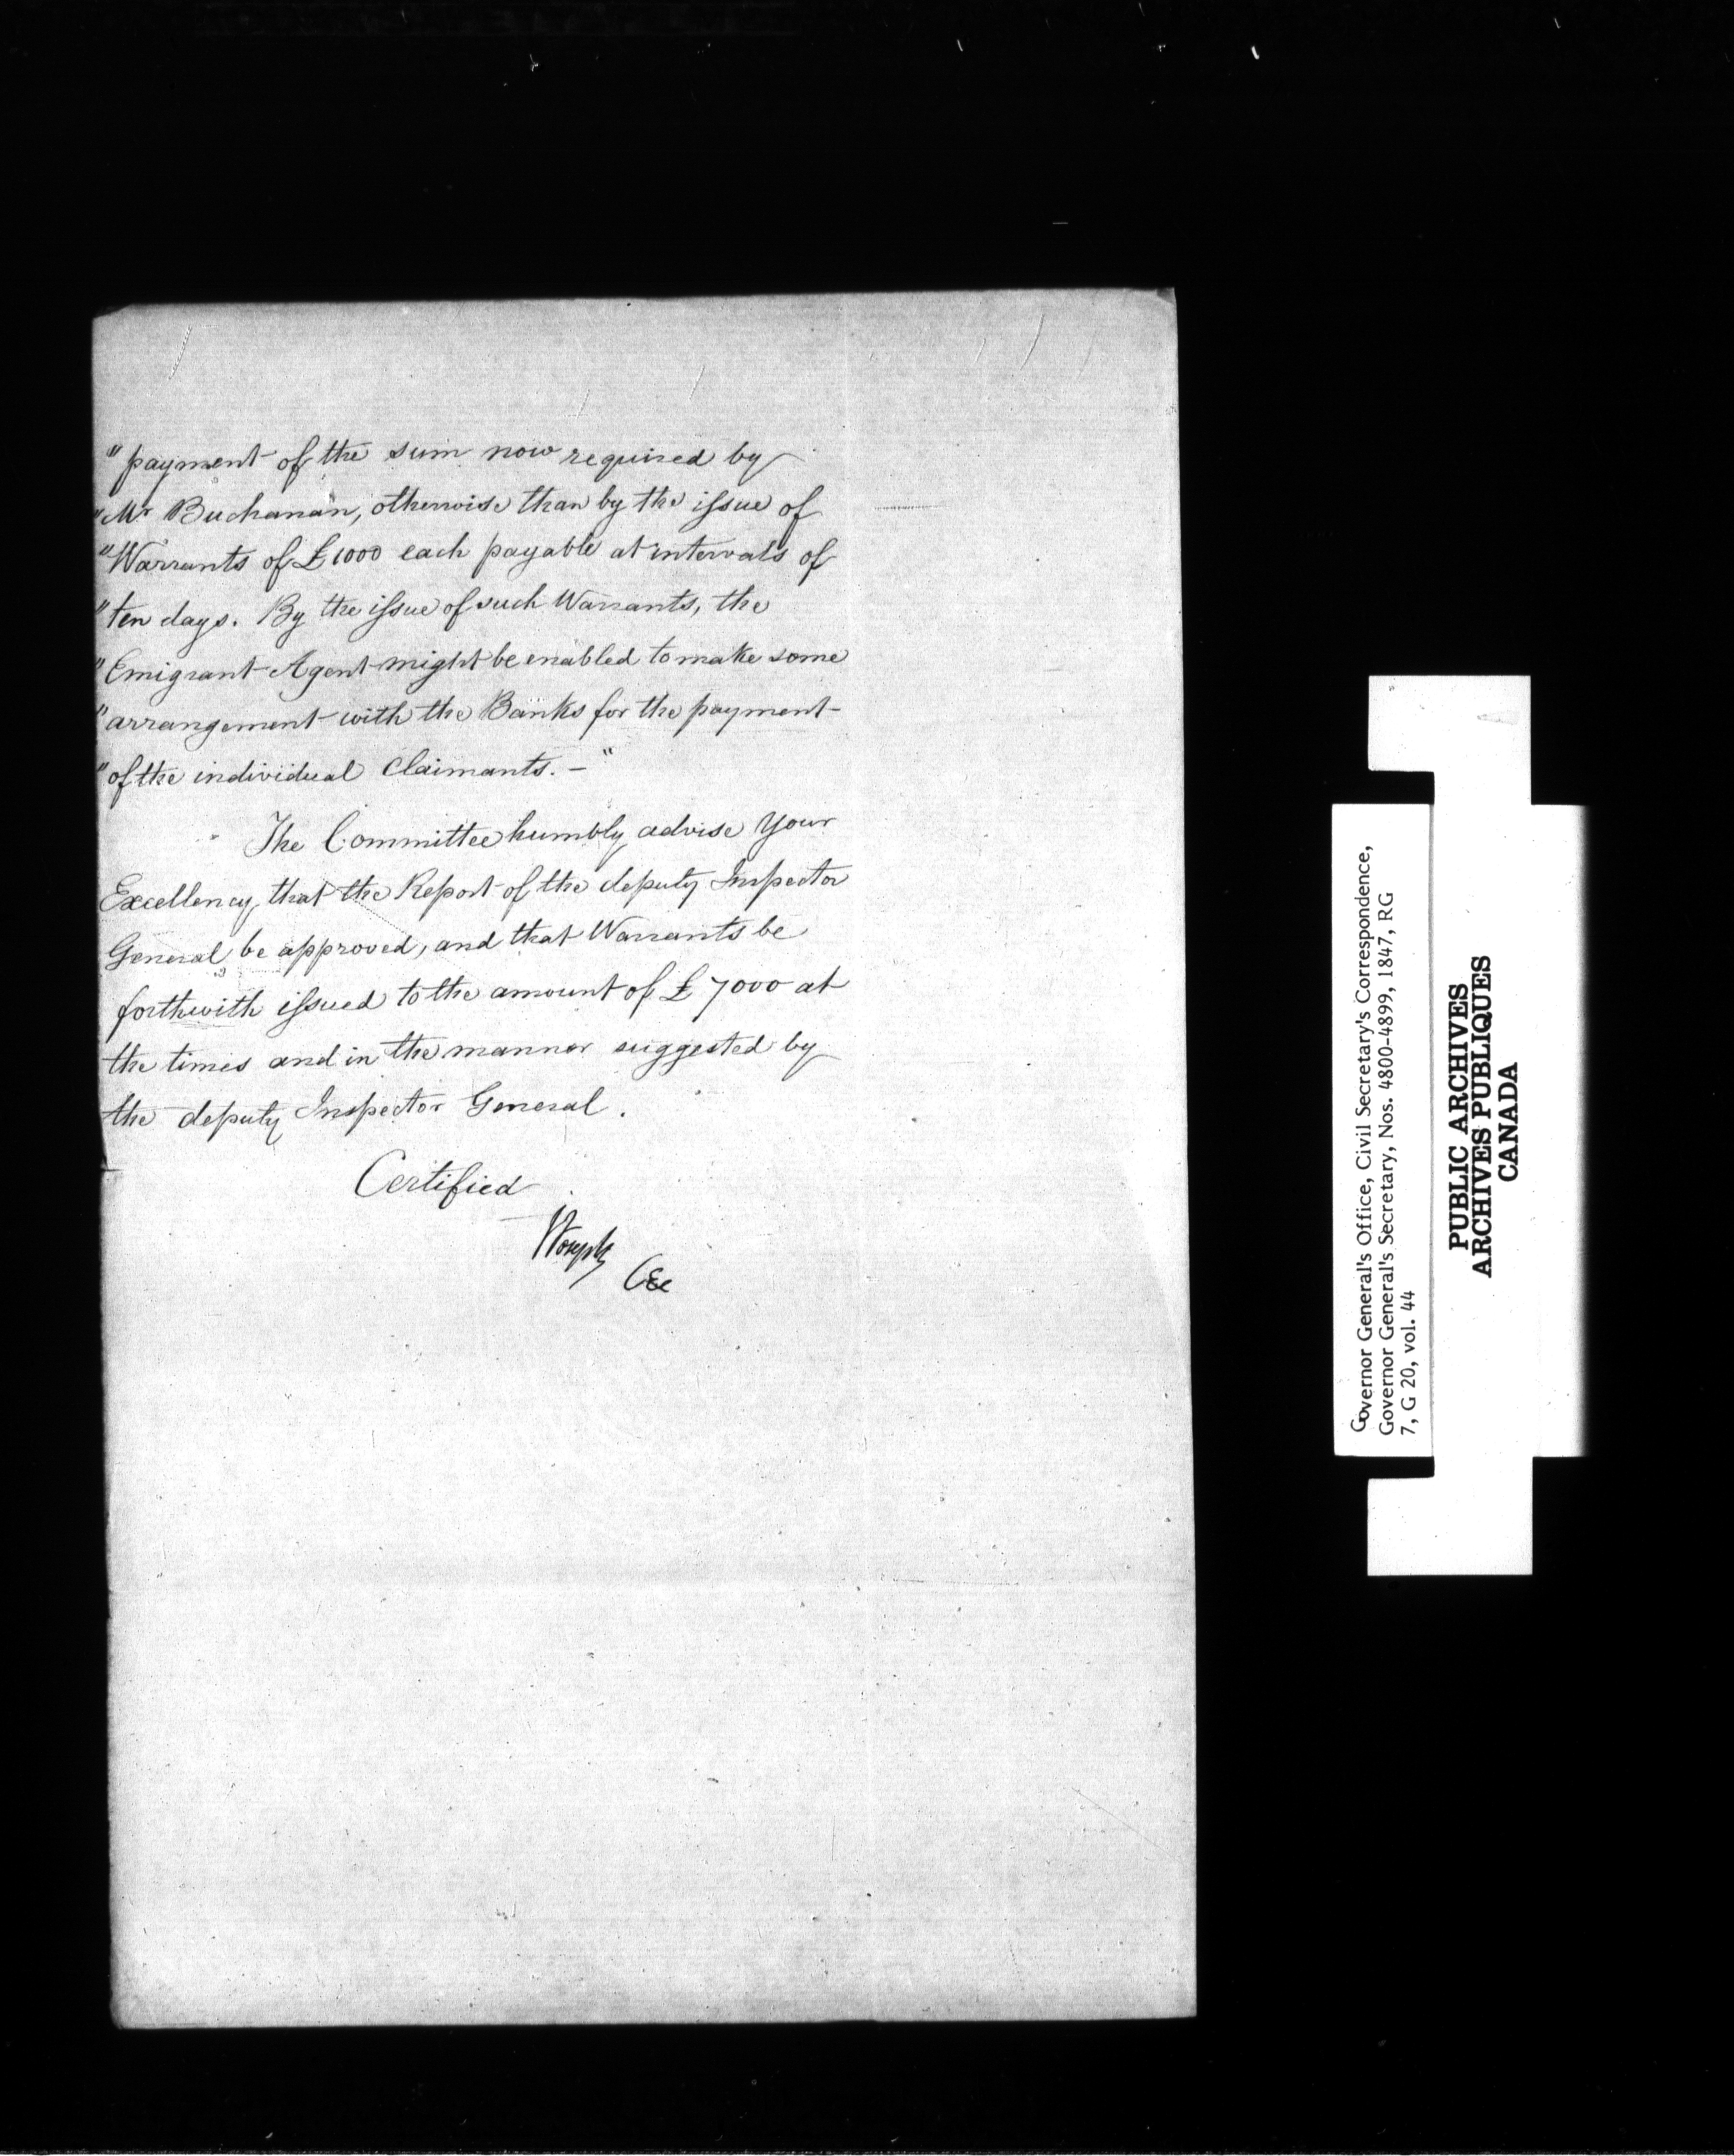 "payment of the sum now required by
"Mr Buchanan, otherwise than by the issue of
"Warrants of £1000 each payable at intervals of
"ten days. By the issue of such Warrants, the
"Emigrant Agent might be enabled to make some
"arrangement with the Banks for the payment
"of the individual Claimants. — "
The Committee humbly advise Your
Excellency that the Report of the deputy Inspector
General be approved, and that Warrants be
forthwith issued to the amount of £7000 at
the times and in the manner suggested by
the deputy Inspector General.
Certified
Governor General's Office, Civil Secretary's Correspondence,
Governor General's Secretary, Nos. 4800-4899, 1847, RG
7, G 20, vol. 44
PUBLIC ARCHIVES
ARCHIVES PUBLIQUES
CANADA